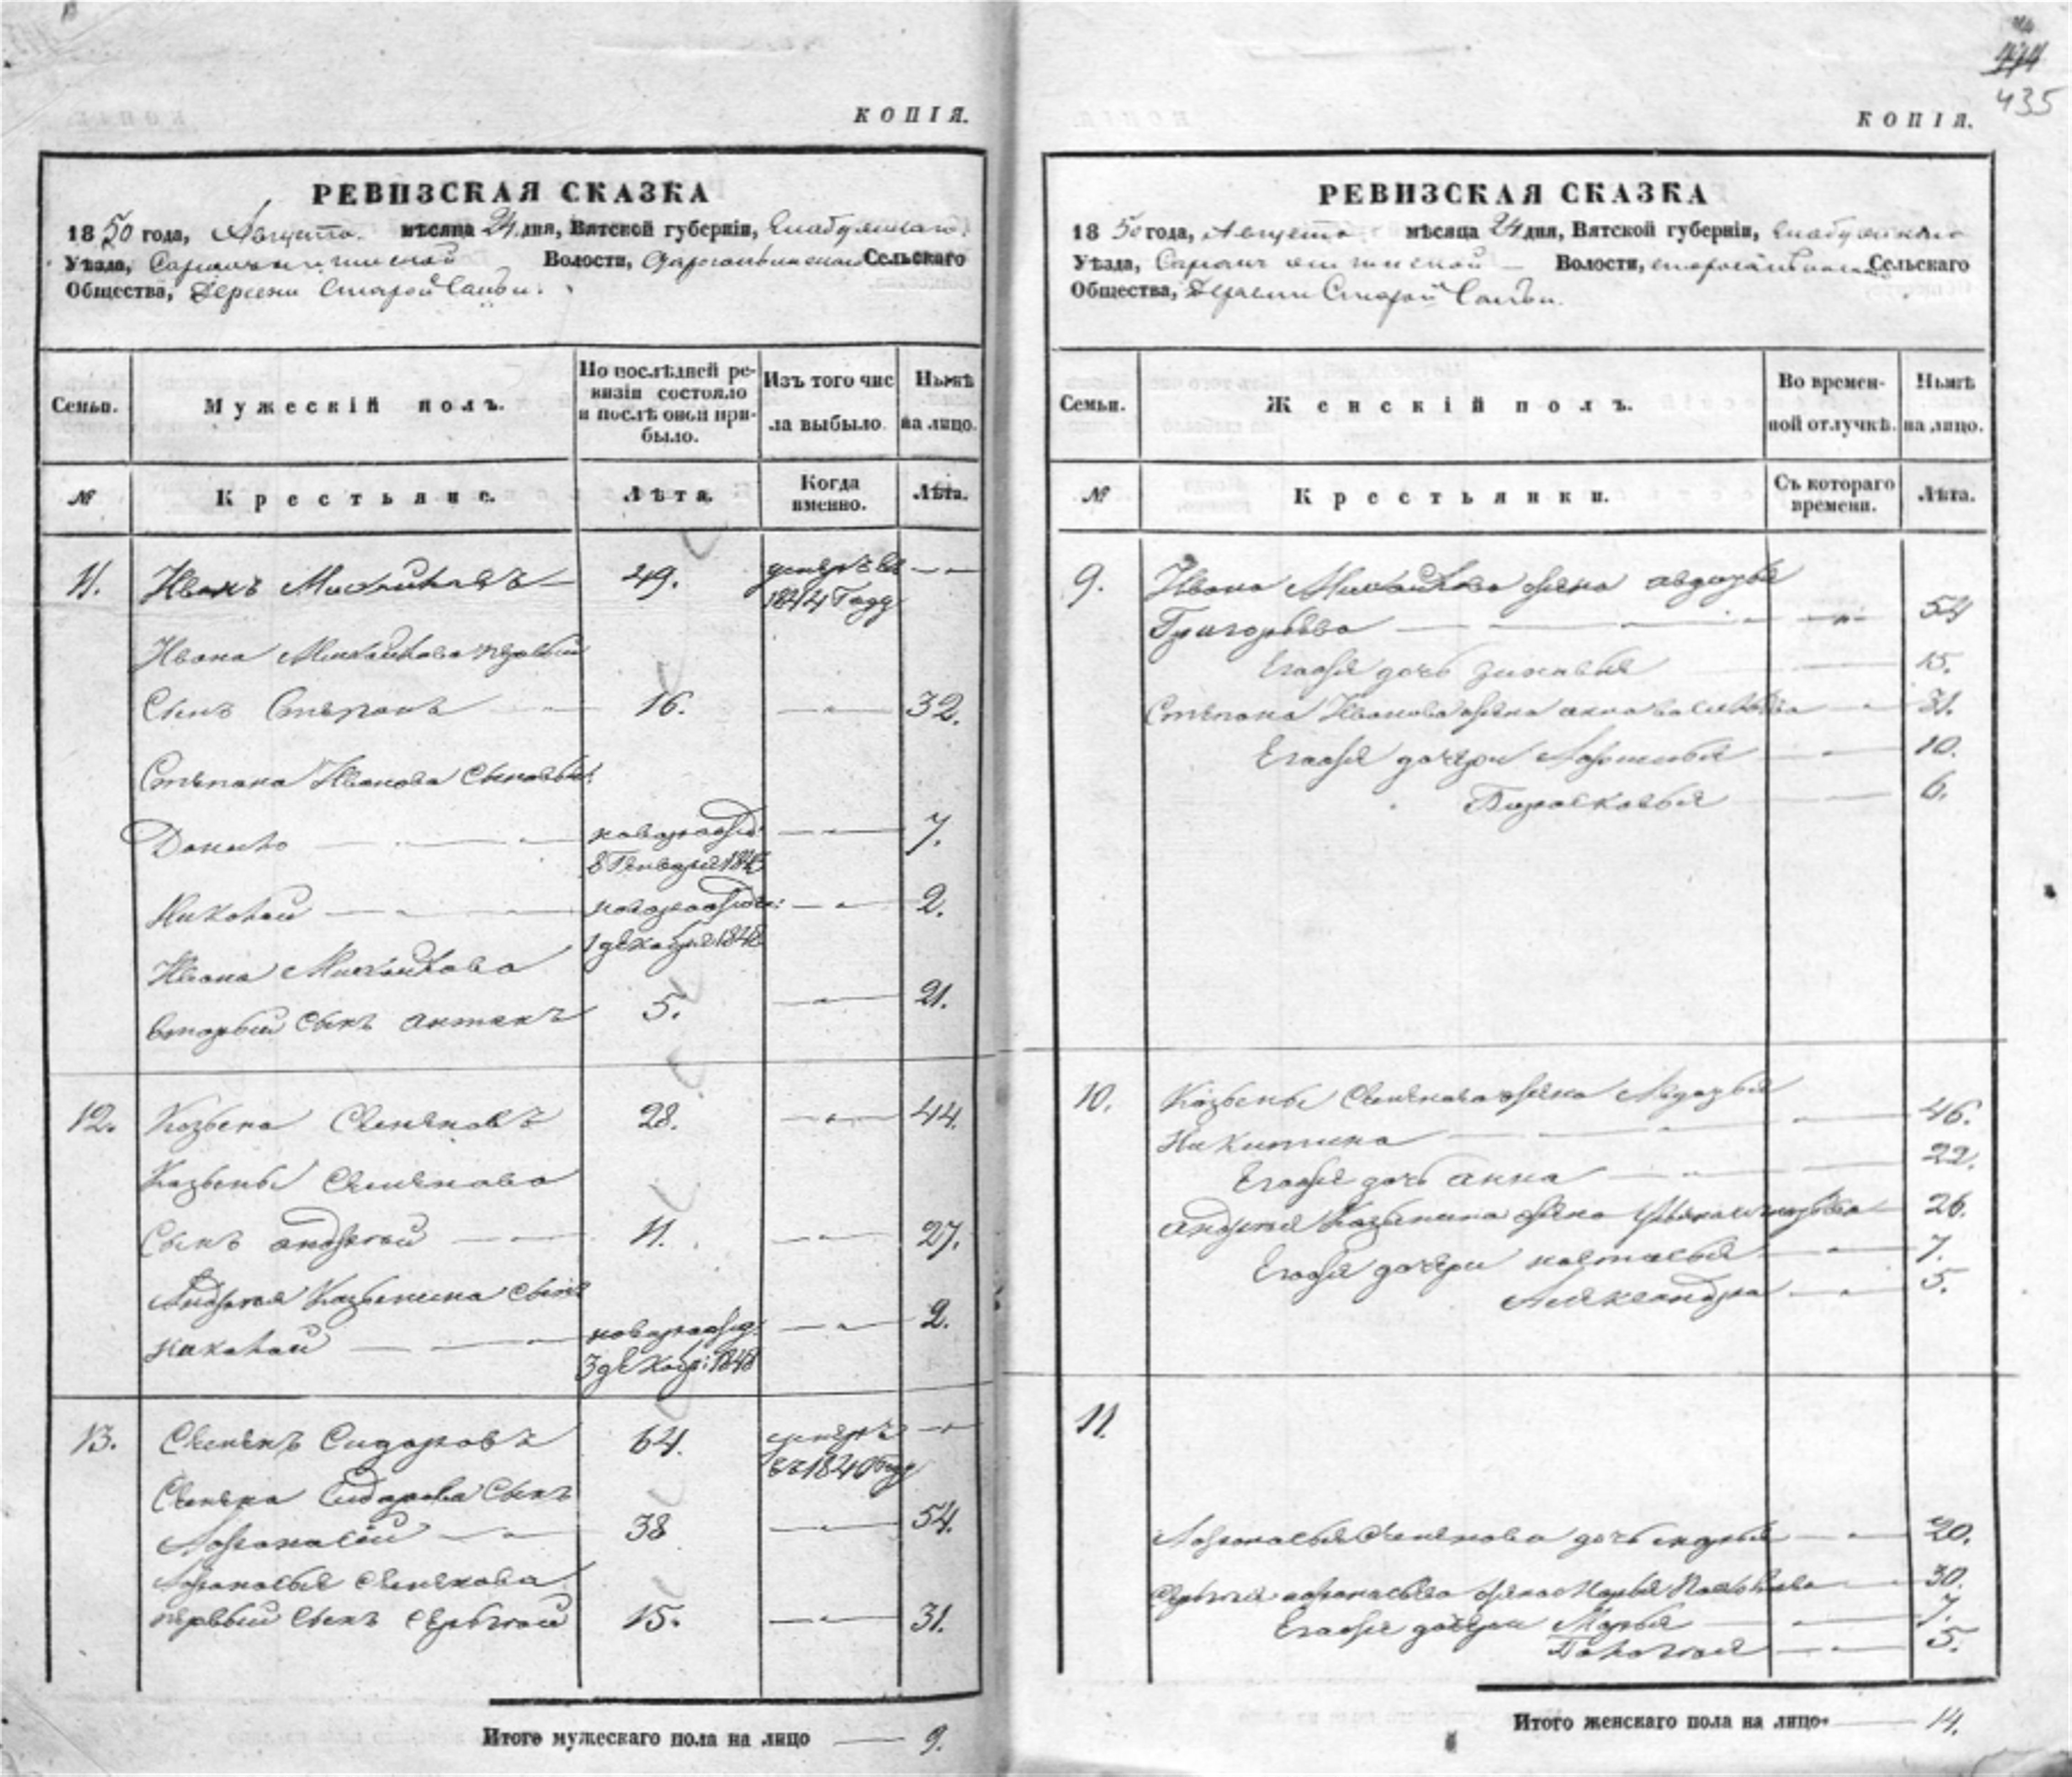 КОПІЯ.
РЕВИЗСКАЯ СКАЗКА
1850 года, Августа мѣсяца 24 дня, Вятской губерніи, Елабужскаго
Уѣзда, Волости, Сельскаго
Общества, Деревни Старой
Семьи.
Мужескій полъ.
По послѣдней ре-
визіи состояло
и послѣ оной при-
было.
Изъ того чис
ла выбыло.
Нынѣ
на лицо.
№
Крестьяне.
Лѣта.
Когда
именно.
Лѣта.
11. Иванъ Михайловъ 49. умеръ въ
1844 Году
Ивана Михайлова первый
Сынъ Степанъ 16. 32.
Степана Иванова Сыновья:
Данило новорожд: 7.
8 Генваря 184
Николай новорожден: 2.
1 декабря 1848
Ивана Михайлова
вторый Сынъ Антонъ 5. 21.
12. Козьма Семеновъ 28. 44.
Козьмы Семенова
Сынъ Андрей 11. 27.
Андрея Козьмина Сынъ
Николай новорожд: 2.
3 декабр: 1848
13. Семенъ Сидоровъ 64. умеръ
въ 1840 Году
Семена Сидорова Сынъ
Афонасій 38 54.
Афонасья Семенова
первый Сынъ Сергей 15. 31.
Итого мужескаго пола на лицо 9.
435
КОПІЯ.
РЕВИЗСКАЯ СКАЗКА
1850 года, Августа мѣсяца 24 дня, Вятской губерніи, Елабужскаго
Уѣзда, Волости, Сельскаго
Общества, Деревни Старой
Семьи.
Женскій полъ.
Во времен-
ной отлучкѣ.
Нынѣ
на лицо.
№
Крестьянки.
Съ котораго
времени.
Лѣта.
9. Ивана Михайлова жена Авдотья
Григорьева 54
Егоже дочь Зиновья 15.
Степана Иванова жена Анна Васильева 31.
Егоже дочери Афимья 10.
Парасковья 6.
10. Козьмы Семенова жена Авдотья
Никитина 46.
Егоже дочь Анна 22.
Андрея Козьмина жена 26.
Егоже дочери Настасья 7.
Александра 5.
11.
Афонасья Семенова дочь 20.
Сергея Афонасьева жена Марья 30.
Егоже дочери Марья 7.
Пелагея 5.
Итого женскаго пола на лицо 14.